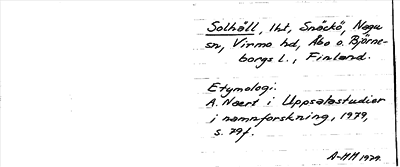 Solhåll, lht, Snäckö, Nagu
sn, Virmo hd, Åbo o. Björne-
borgs l., Finland.
Etymologi:
A. Naert i Uppsalastudier
i namnforskning, 1979,
s. 79f.
A-MH 1979.